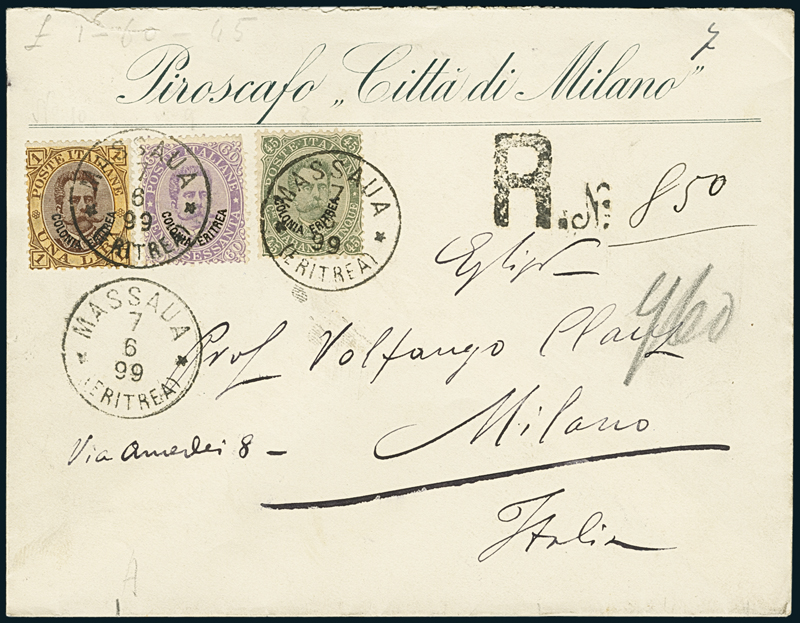 £ 1-60-45
7
Piroscafo „Città di Milano”
1 POSTE ITALIANE
COLONIA ERITREA
UNA
1
60
POSTE ITALIANE
COLONIA ERITREA
SESSANTA
45 POSTE ITALIANE
COLONIA ERITREA
45
MASSAUA
7
6
99
(ERITREA)
MASSAUA
7
99
(ERITREA)
R.N. 850
MASSAUA
7
6
99
(ERITREA)
Prof Volfango
Milano
Via Amedei 8 -
Italia
A